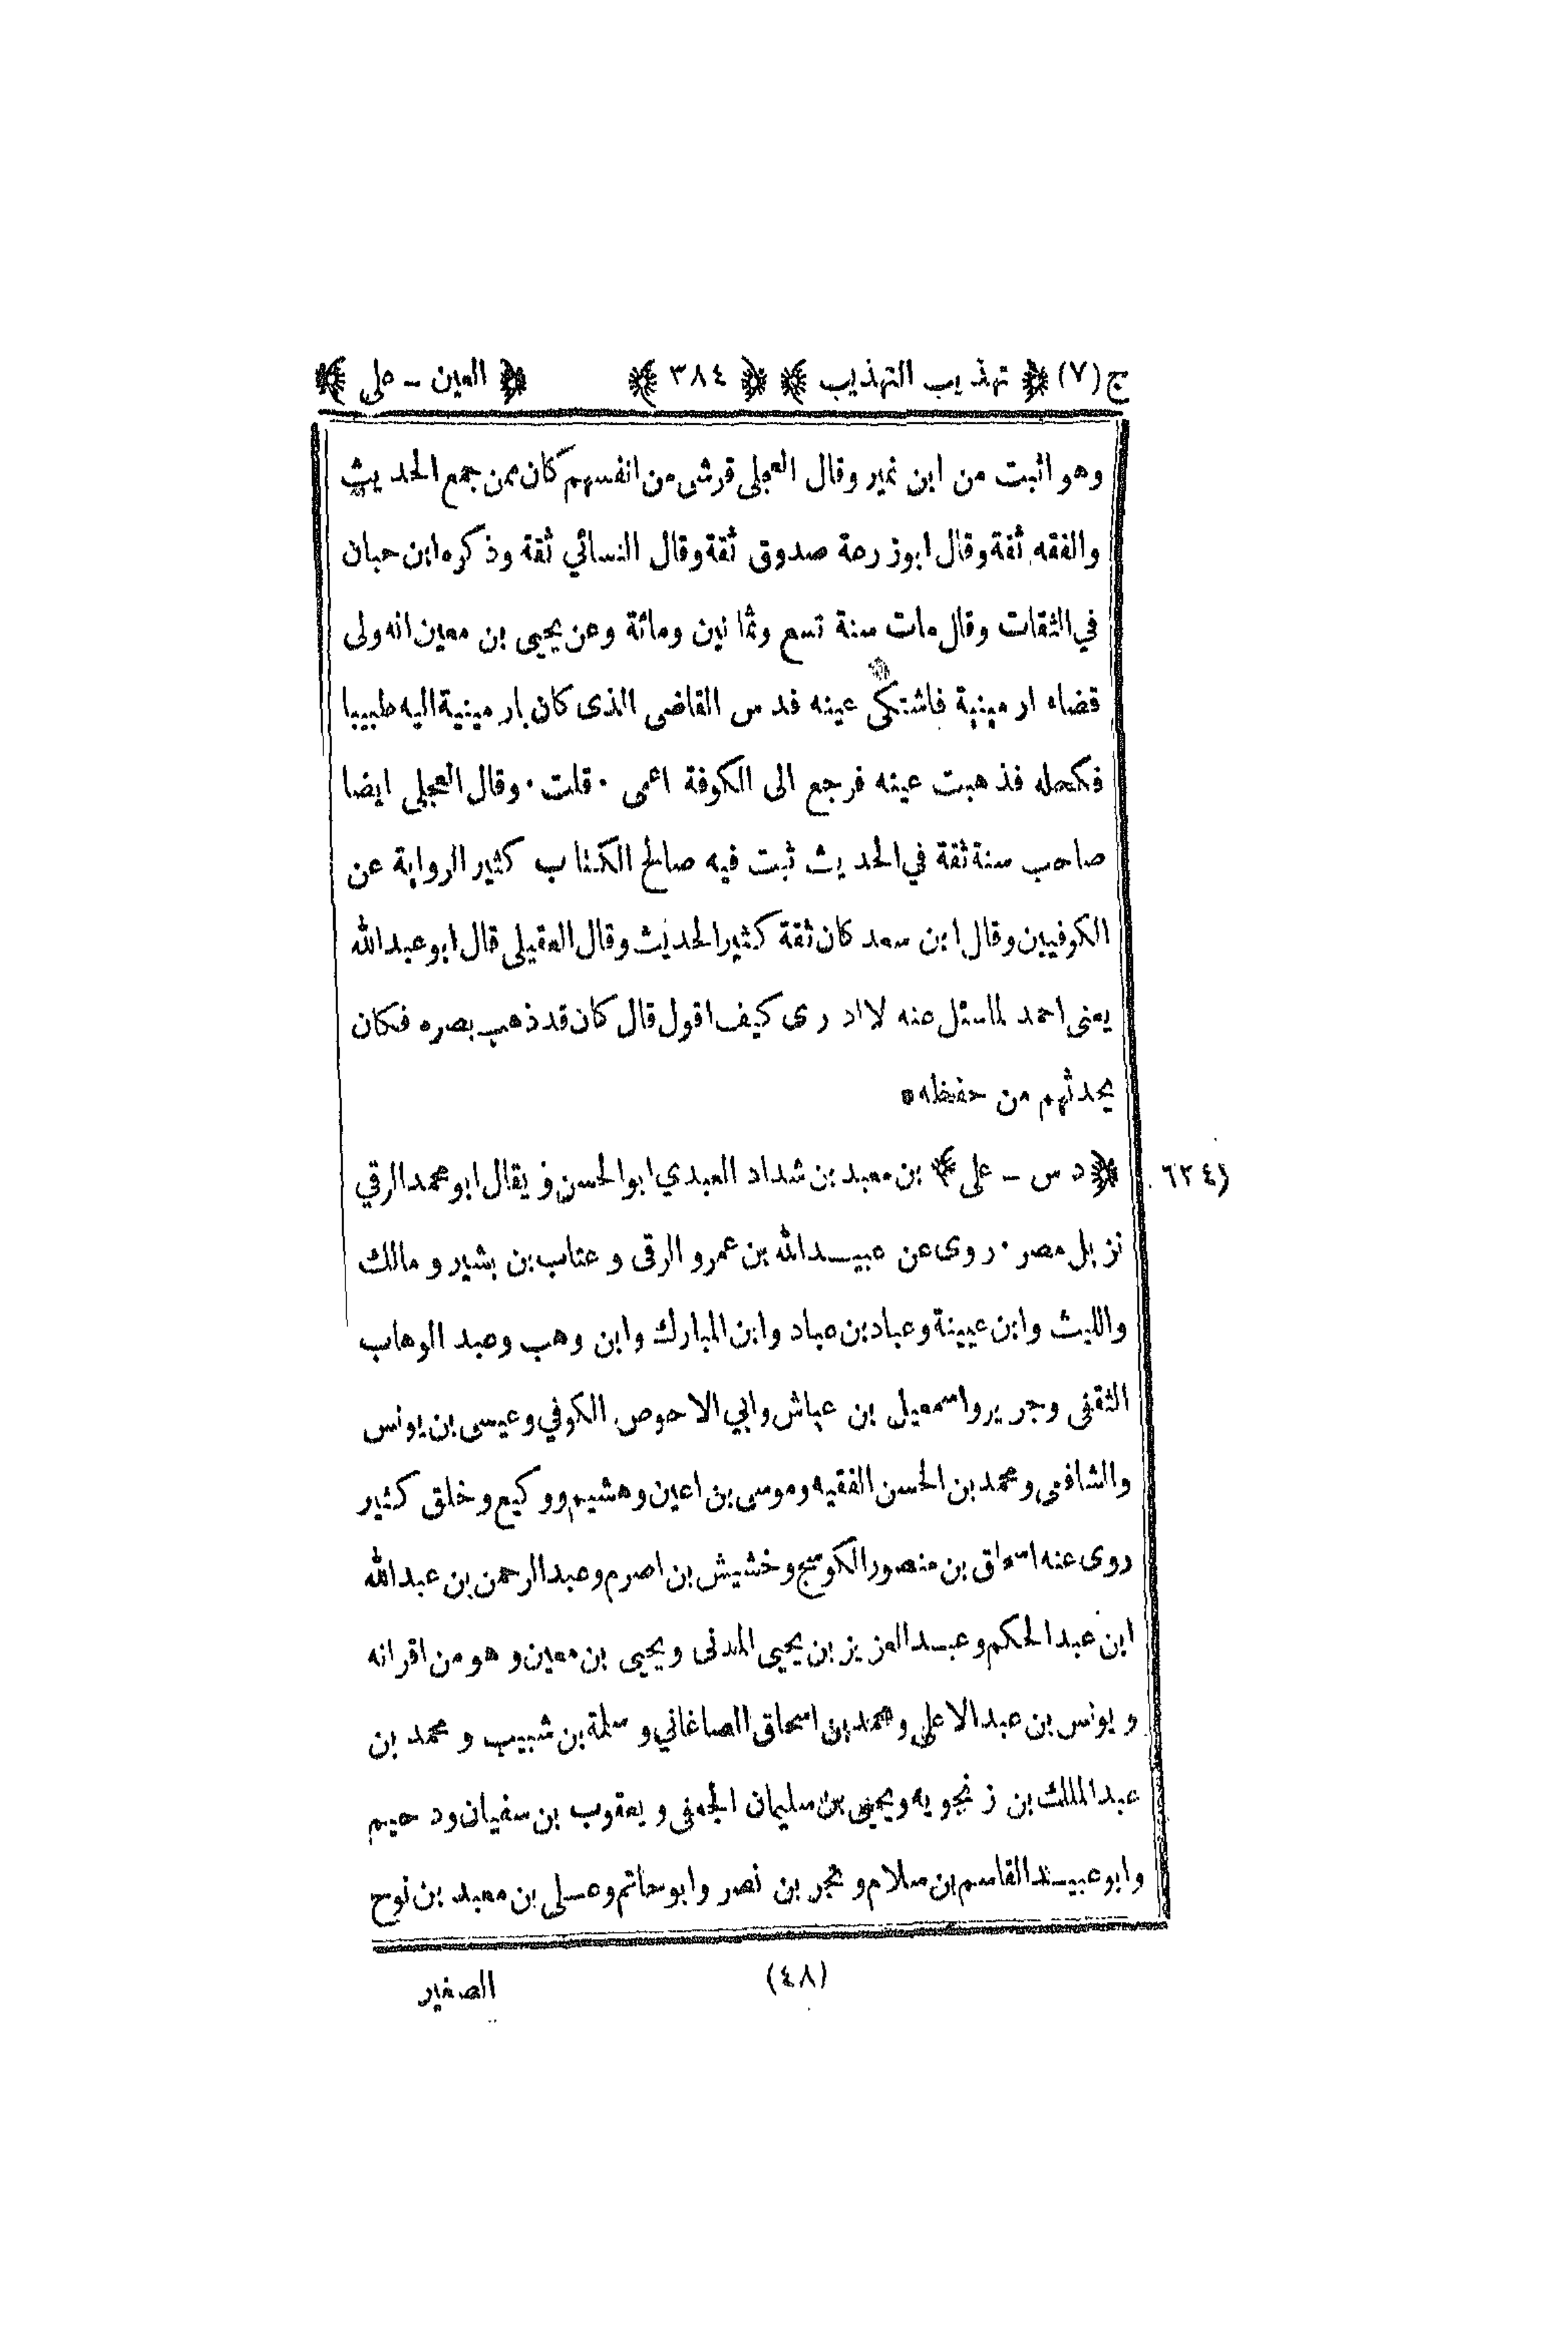 ج (٧) ﴿ تهذيب التهذيب ﴾ ﴿ ٣٨٤ ﴾ ﴿ العين - على ﴾
وهو اثبت من ابن نمير وقال العجلى قرشى من انفسهم كان ممن جمع الحديث
والفقه ثقة وقال ابوزرعة صدوق ثقة وقال النسائي ثقة وذكره ابن حبان
في الثقات وقال مات سنة تسع وثمانين ومائة وعن يحيى بن معين انه ولى
قضاء ارمينية فاشتكى عينه فدس القاضى الذى كان بارمينية اليه طبيبا
فكحله فذهبت عينه فرجع الى الكوفة اعمى · قلت · وقال العجلى ايضا
صاحب سنة ثقة في الحديث ثبت فيه صالح الكتاب كثير الرواية عن
الكوفيين وقال ابن سعد كان ثقة كثير الحديث وقال العقيلى قال ابو عبدالله
يعنى احمد لما سئل عنه لا ادرى كيف اقول قال كان قد ذهب بصره فكان
يحدثهم من حفظه ٥
(٦٢٤ ﴿ د س - على ﴾ بن معبد بن شداد العبدي ابوالحسن ويقال ابو محمد الرقي
نزيل مصر · روى عن عبيدالله بن عمرو الرقى وعتاب بن بشير ومالك
والليث وابن عيينة وعباد بن عباد وابن المبارك وابن وهب وعبد الوهاب
الثقفى وجرير واسمعيل بن عياش وابي الاحوص الكوفي وعيسى بن يونس
والشافعى ومحمد بن الحسن الفقيه وموسى بن اعين وهشيم ووكيع وخلق كثير
روى عنه اسحاق بن منصور الكوسج وخشيش بن اصرم وعبدالرحمن بن عبدالله
ابن عبدالحكم وعبدالعزيز بن يحيى المدنى ويحيى بن معين وهو من اقرانه
ويونس بن عبدالاعلى ومحمد بن اسحاق الصاغاني وسلمة بن شبيب ومحمد بن
عبدالملك بن زنجويه ويحيى بن سليمان الجعفى ويعقوب بن سفيان ودحيم
وابوعبيد القاسم بن سلام وبحر بن نصر وابوحاتم وعلى بن معبد بن نوح
(٤٨)
الصغير